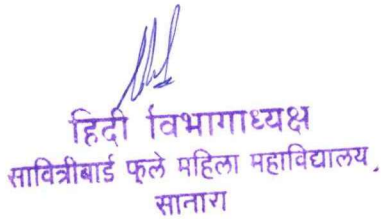 हिंदी विभागाध्यक्ष
सावित्रीबाई फुले महिला महाविद्यालय,
सातारा